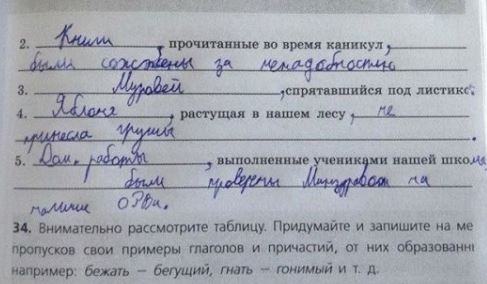 2. Книги, прочитанные во время каникул,
были сожжены за ненадобностью
3. Муравей, спрятавшийся под листик
4. Яблоня, растущая в нашем лесу, не
принесла груши.
5. Дом. работы, выполненные учениками нашей школы
были проверены Минздравом на
наличие ОРВи.
34. Внимательно рассмотрите таблицу. Придумайте и запишите на ме
пропусков свои примеры глаголов и причастий, от них образованн
например: бежать – бегущий, гнать – гонимый и т. д.